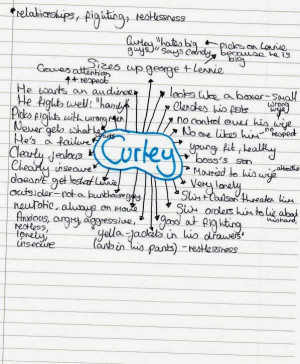 •relationships, fighting, restlessness
Curley "hates big guys" says Candy
Picks on Lennie because he is big
Sizes up george + Lennie
Craves attention + respect
He wants an audience
He fights well: "handy"
Picks fights with wrong men
Never gets what he wants
He's a failure
Clearly jealous
Clearly insecure
doesn't get
outsider - not a bunkhouse guy
neurotic, always on move
Anxious, angry, aggressive,
restless,
lonely
insecure
Curley
looks like a boxer - small
Clenches his fists
no control over his wife
wrong wife
No one likes him - no respect
young, fit, healthy
boss's son
Married to his wife
Very lonely
Slim + Carlson threaten him
Slim orders him to lie about hand
good at fighting
yella-jackets in his drawers'
(ants in his pants) - restlessness